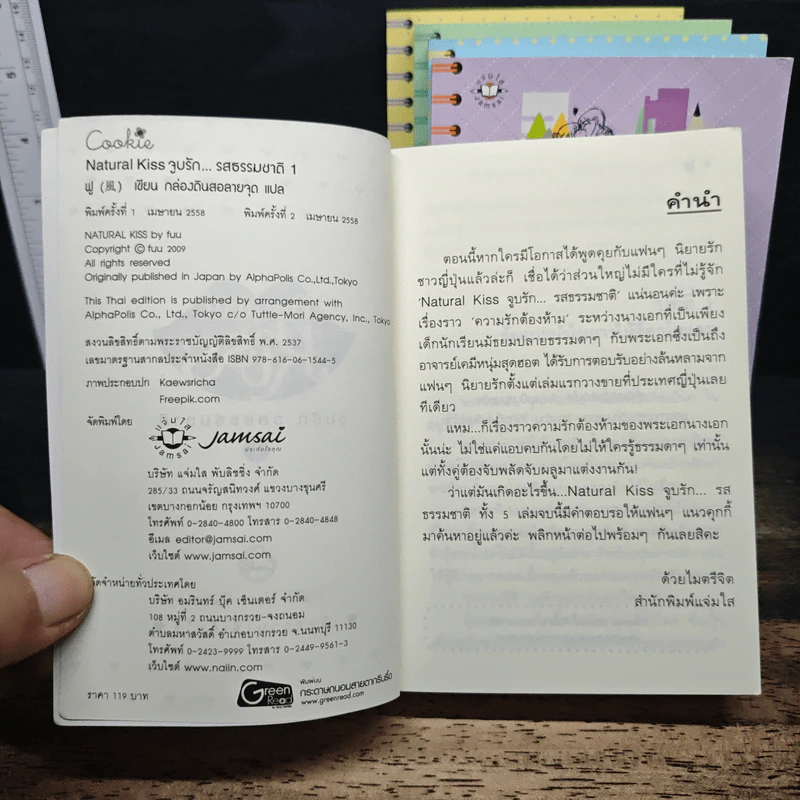 Cookie
Natural Kiss จูบรัก... รสธรรมชาติ 1
ฟู (風) เขียน กล่องดินสอลายจุด แปล
พิมพ์ครั้งที่ 1 เมษายน 2558 พิมพ์ครั้งที่ 2 เมษายน 2558
NATURAL KISS by fuu
Copyright © fuu 2009
All rights reserved
Originally published in Japan by AlphaPolis Co.,Ltd.,Tokyo
This Thai edition is published by arrangement with
AlphaPolis Co., Ltd., Tokyo c/o Tuttle-Mori Agency, Inc., Tokyo
สงวนลิขสิทธิ์ตามพระราชบัญญัติลิขสิทธิ์ พ.ศ. 2537
เลขมาตรฐานสากลประจำหนังสือ ISBN 978-616-06-1544-5
ภาพประกอบปก Kaewsricha
Freepik.com
จัดพิมพ์โดย
แจ่มใส
Jamsai
Jamsai
บริษัท แจ่มใส พับลิชชิ่ง จำกัด
285/33 ถนนจรัญสนิทวงศ์ แขวงบางขุนศรี
เขตบางกอกน้อย กรุงเทพฯ 10700
โทรศัพท์ 0-2840-4800 โทรสาร 0-2840-4848
อีเมล editor@jamsai.com
เว็บไซต์ www.jamsai.com
จัดจำหน่ายทั่วประเทศโดย
บริษัท อมรินทร์ บุ๊ค เซ็นเตอร์ จำกัด
108 หมู่ที่ 2 ถนนบางกรวย-จงถนอม
ตำบลมหาสวัสดิ์ อำเภอบางกรวย จ.นนทบุรี 11130
โทรศัพท์ 0-2423-9999 โทรสาร 0-2449-9561-3
เว็บไซต์ www.naiin.com
ราคา 119 บาท
Green Read
พิมพ์บน
กระดาษถนอมสายตากรีนรี้ด
www.greenread.com
คำนำ
ตอนนี้หากใครมีโอกาสได้พูดคุยกับแฟนๆ นิยายรัก
ชาวญี่ปุ่นแล้วล่ะก็ เชื่อได้ว่าส่วนใหญ่ไม่มีใครที่ไม่รู้จัก
'Natural Kiss จูบรัก... รสธรรมชาติ' แน่นอนค่ะ เพราะ
เรื่องราว 'ความรักต้องห้าม' ระหว่างนางเอกที่เป็นเพียง
เด็กนักเรียนมัธยมปลายธรรมดาๆ กับพระเอกซึ่งเป็นถึง
อาจารย์เคมีหนุ่มสุดฮอต ได้รับการตอบรับอย่างล้นหลามจาก
แฟนๆ นิยายรักตั้งแต่เล่มแรกวางขายที่ประเทศญี่ปุ่นเลย
ทีเดียว
แหม...ก็เรื่องราวความรักต้องห้ามของพระเอกนางเอก
นั้นน่ะ ไม่ใช่แค่แอบคบกันโดยไม่ให้ใครรู้ธรรมดาๆ เท่านั้น
แต่ทั้งคู่ต้องจับพลัดจับผลูมาแต่งงานกัน!
ว่าแต่มันเกิดอะไรขึ้น...Natural Kiss จูบรัก... รส
ธรรมชาติ ทั้ง 5 เล่มจบนี้มีคำตอบรอให้แฟนๆ แนวคุกกี้
มาค้นหาอยู่แล้วค่ะ พลิกหน้าต่อไปพร้อมๆ กันเลยสิคะ
ด้วยไมตรีจิต
สำนักพิมพ์แจ่มใส
แจ่มใส
Jamsai